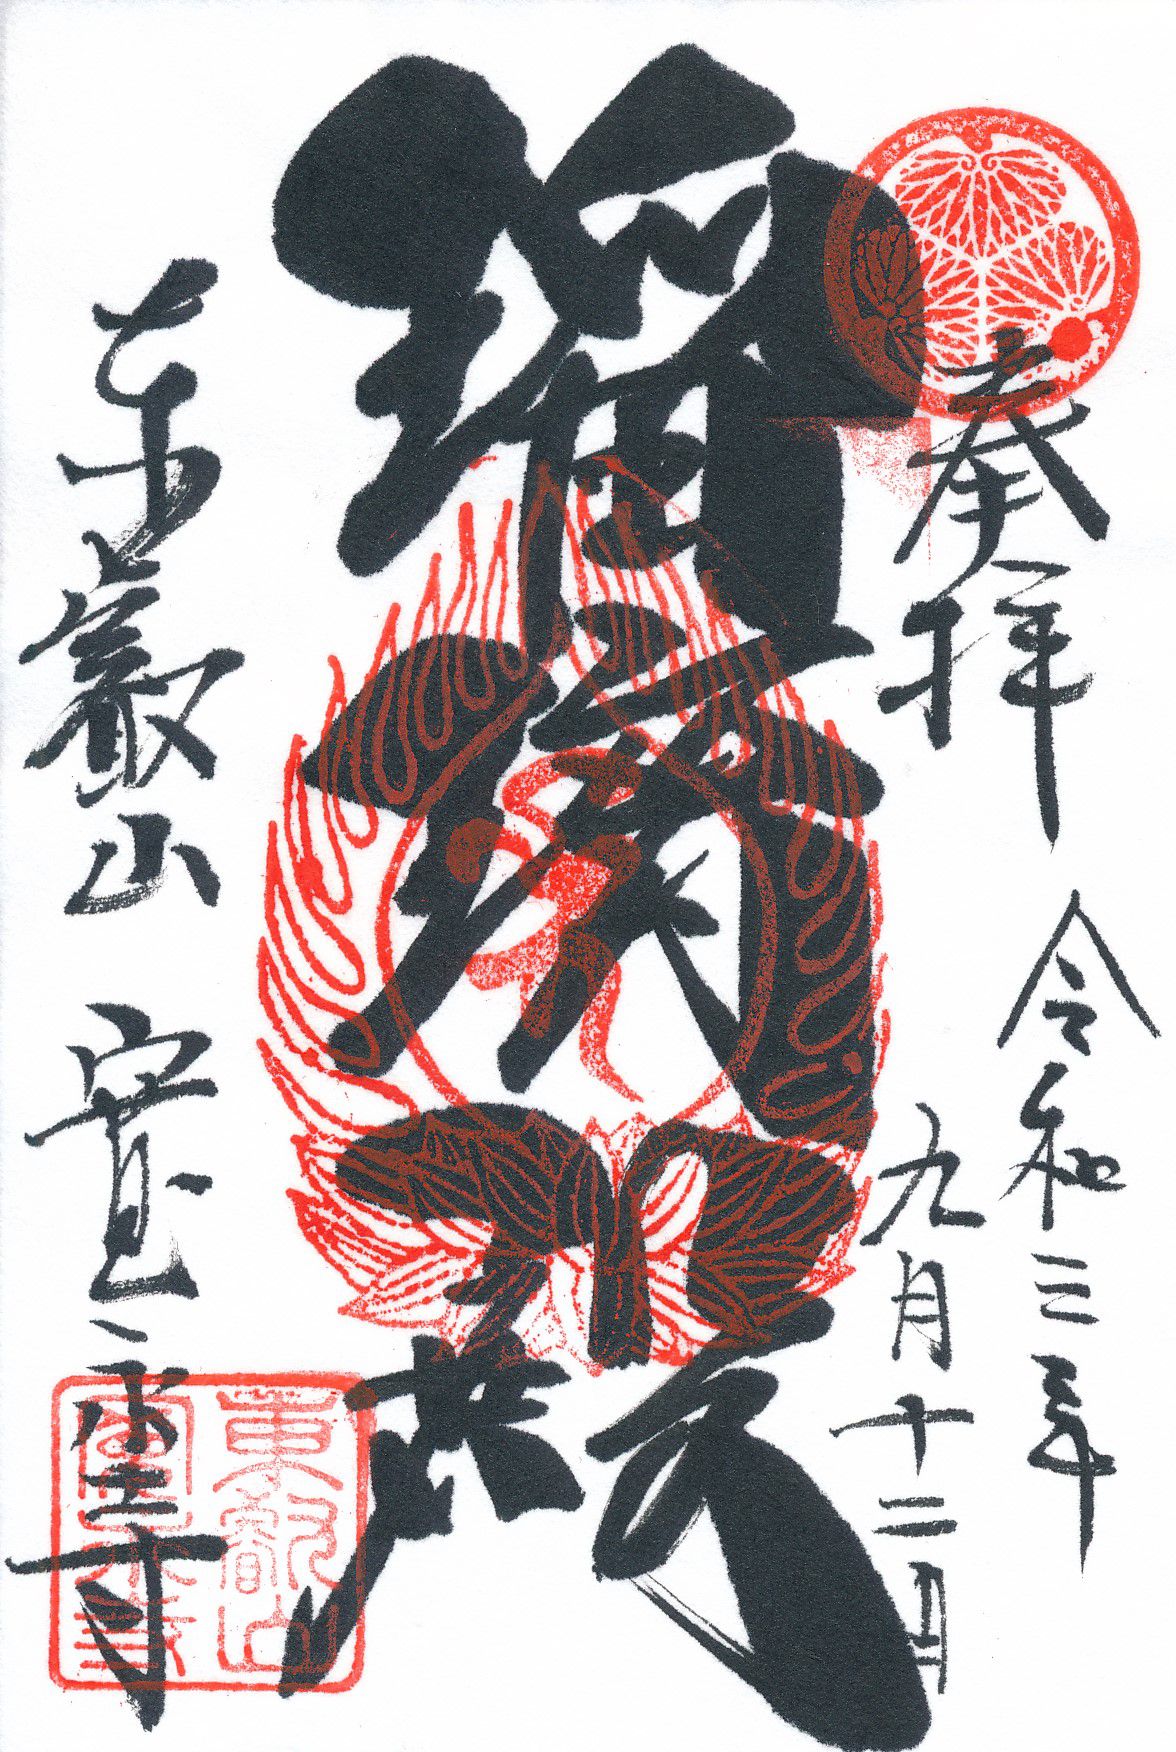 奉拝
令和三年
九月十二日
瑠璃殿
東叡山 寛永寺
東叡山
寛永寺